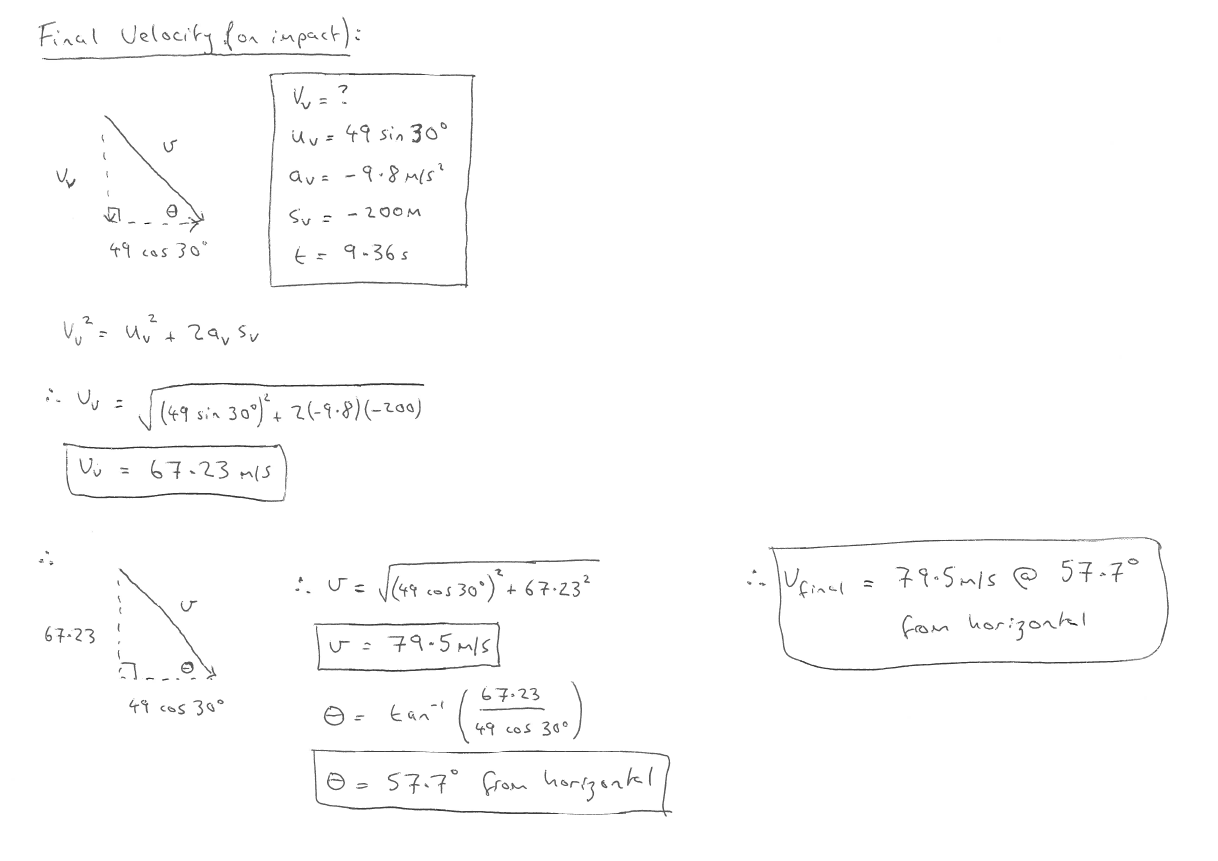 Final Velocity (on impact):
Vᵥ = ?
uᵥ = 49 sin 30°
aᵥ = -9.8 m/s²
sᵥ = -200m
t = 9.36s
Vᵥ
v
θ
49 cos 30°
Vᵥ² = uᵥ² + 2aᵥsᵥ
∴ Vᵥ = √((49 sin 30°)² + 2(-9.8)(-200))
Vᵥ = 67.23 m/s
∴
67.23
v
θ
49 cos 30°
∴ v = √((49 cos 30°)² + 67.23²)
v = 79.5 m/s
θ = tan⁻¹ (67.23 / 49 cos 30°)
θ = 57.7° from horizontal
∴ V final = 79.5 m/s @ 57.7°
from horizontal